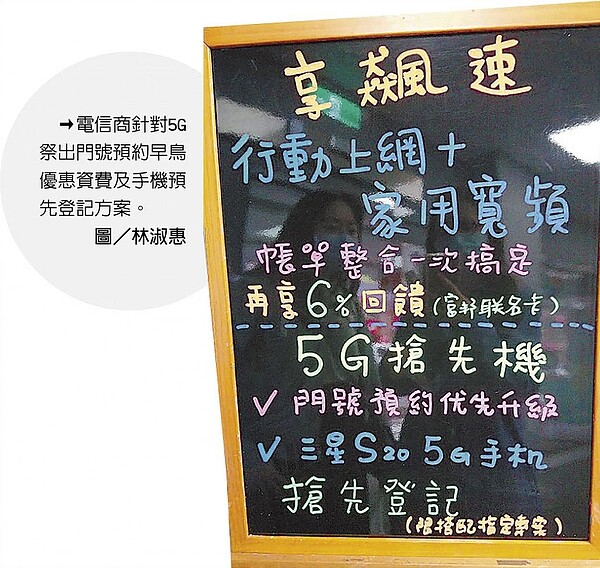 →電信商針對5G
祭出門號預約早鳥
優惠資費及手機預
先登記方案。
圖／林淑惠
享飆速
行動上網+
家用寬頻
帳單整合一次搞定
再享6%回饋(富邦联名卡)
5G搶先機
✓門號預約优先升級
✓三星S20 5G手机
搶先登記
(限搭配指定專案)